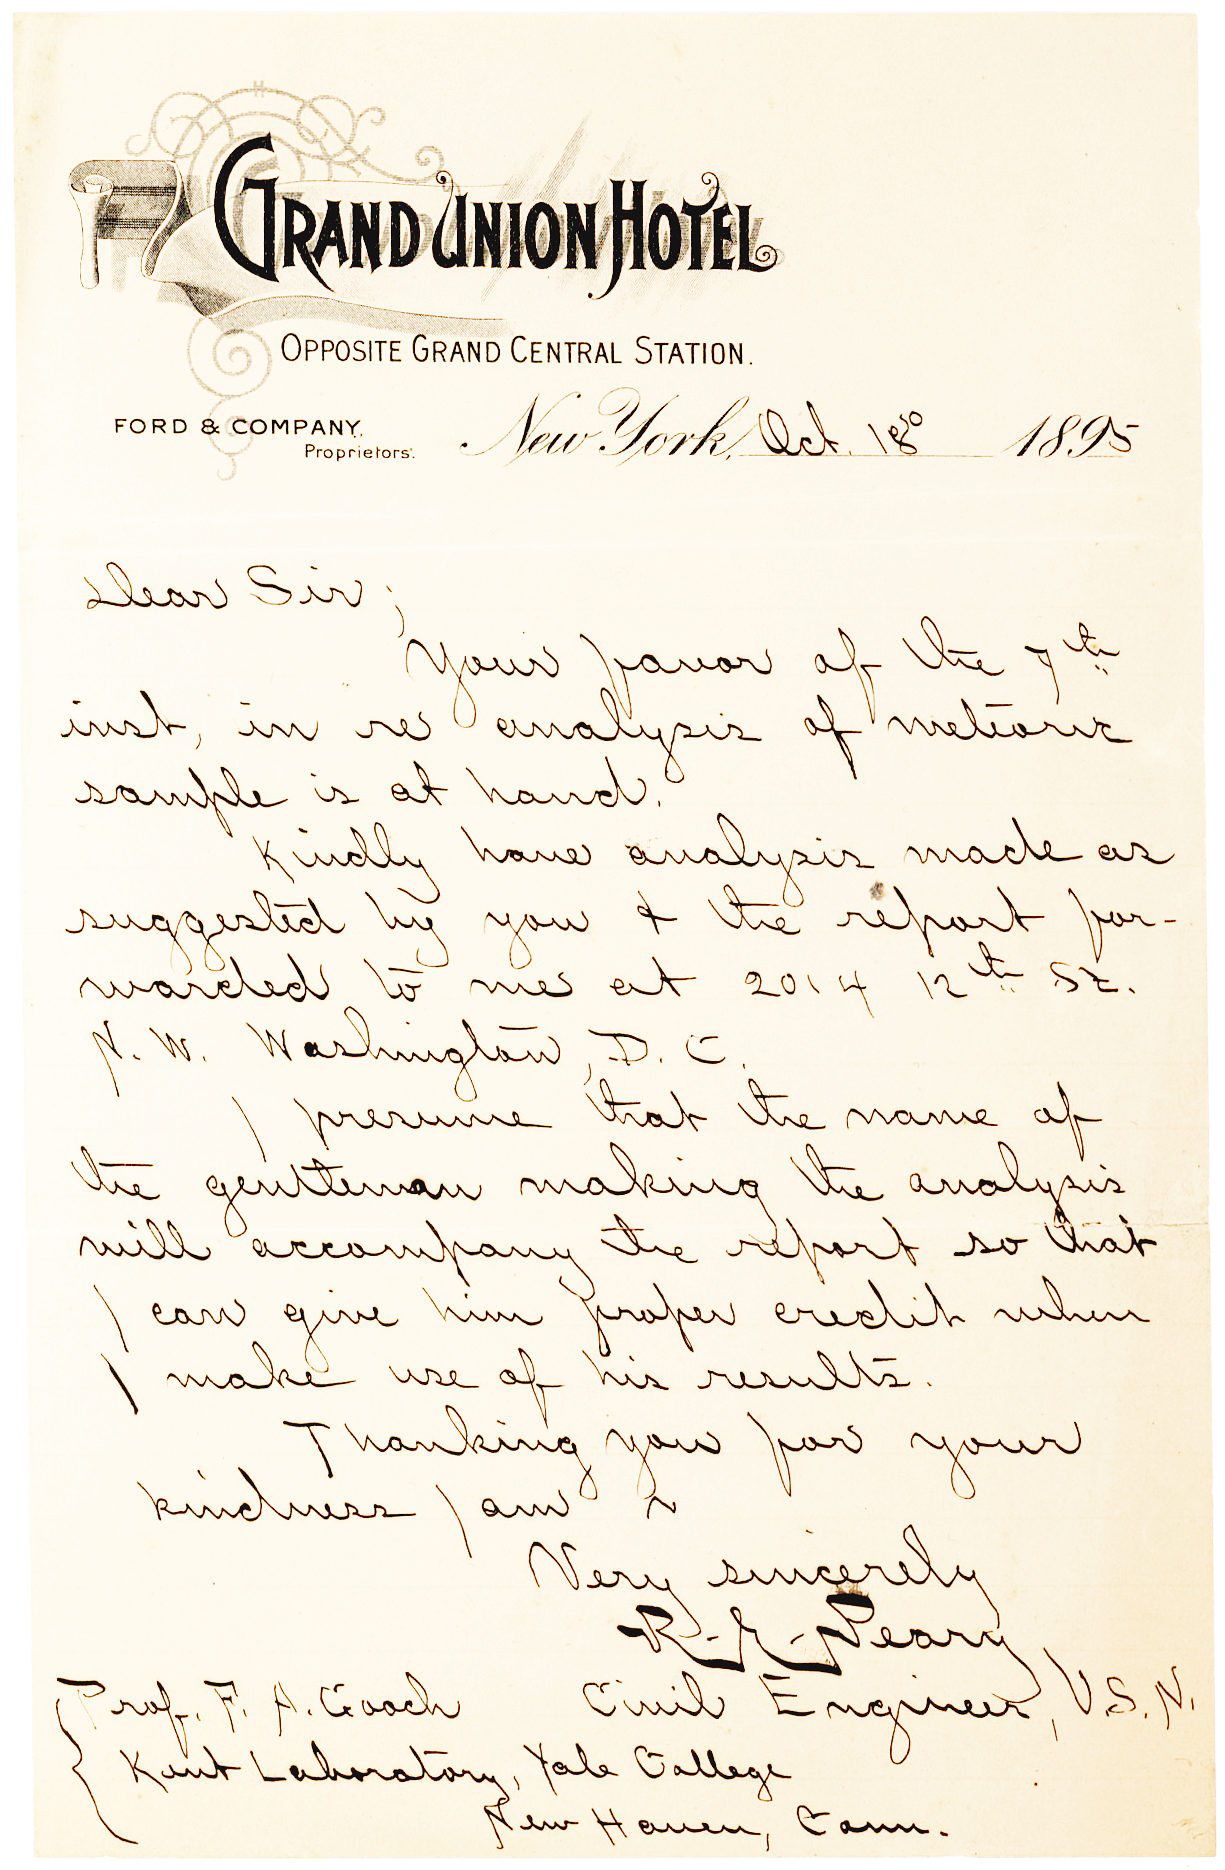 GRAND UNION HOTEL
OPPOSITE GRAND CENTRAL STATION.
FORD & COMPANY,
Proprietors.
New York, Oct. 18 1895
Dear Sir;
Your favor of the 7th
inst, in re analysis of meteoric
sample is at hand.
Kindly have analysis made as
suggested by you & the report for-
warded to me at 2014 12th St.
N. W. Washington, D. C.
I presume that the name of
the gentleman making the analysis
will accompany the report so that
I can give him proper credit when
I make use of his results.
Thanking you for your
kindness I am ~
Very sincerely
R. E. Peary
Civil Engineer, U.S.N.
Prof. F. A. Gooch
Kent Laboratory, Yale College
New Haven, Conn.